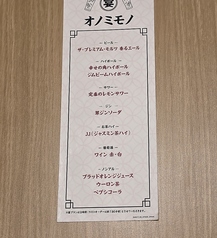 宴
オノミモノ
― ビール ―
ザ・プレミアム・モルツ 香るエール
― ハイボール ―
幸せの角ハイボール
ジムビームハイボール
― サワー ―
定番のレモンサワー
― ジン ―
翠ジンソーダ
― お茶ハイ ―
JJ(ジャスミン茶ハイ)
― 葡萄酒 ―
ワイン 赤・白
― ノンアル ―
ブラッドオレンジジュース
ウーロン茶
ペプシコーラ